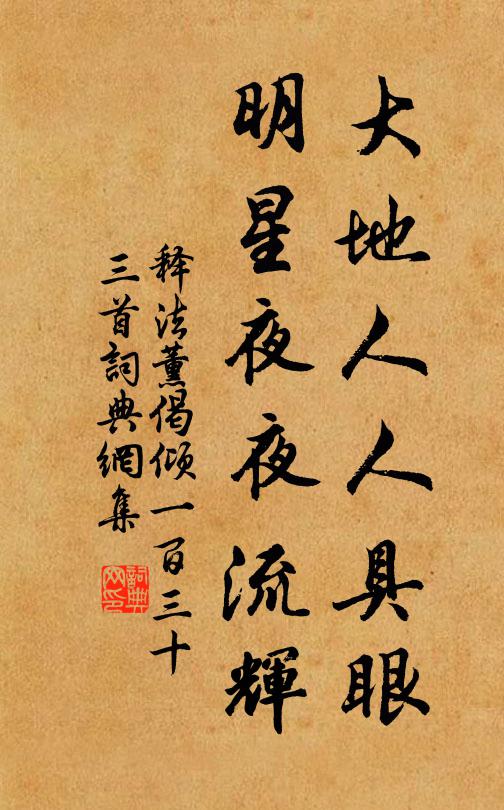 大地人人具眼
明星夜夜流輝
释法薰偈倾一百三十
三首詞典網集
詞典网印